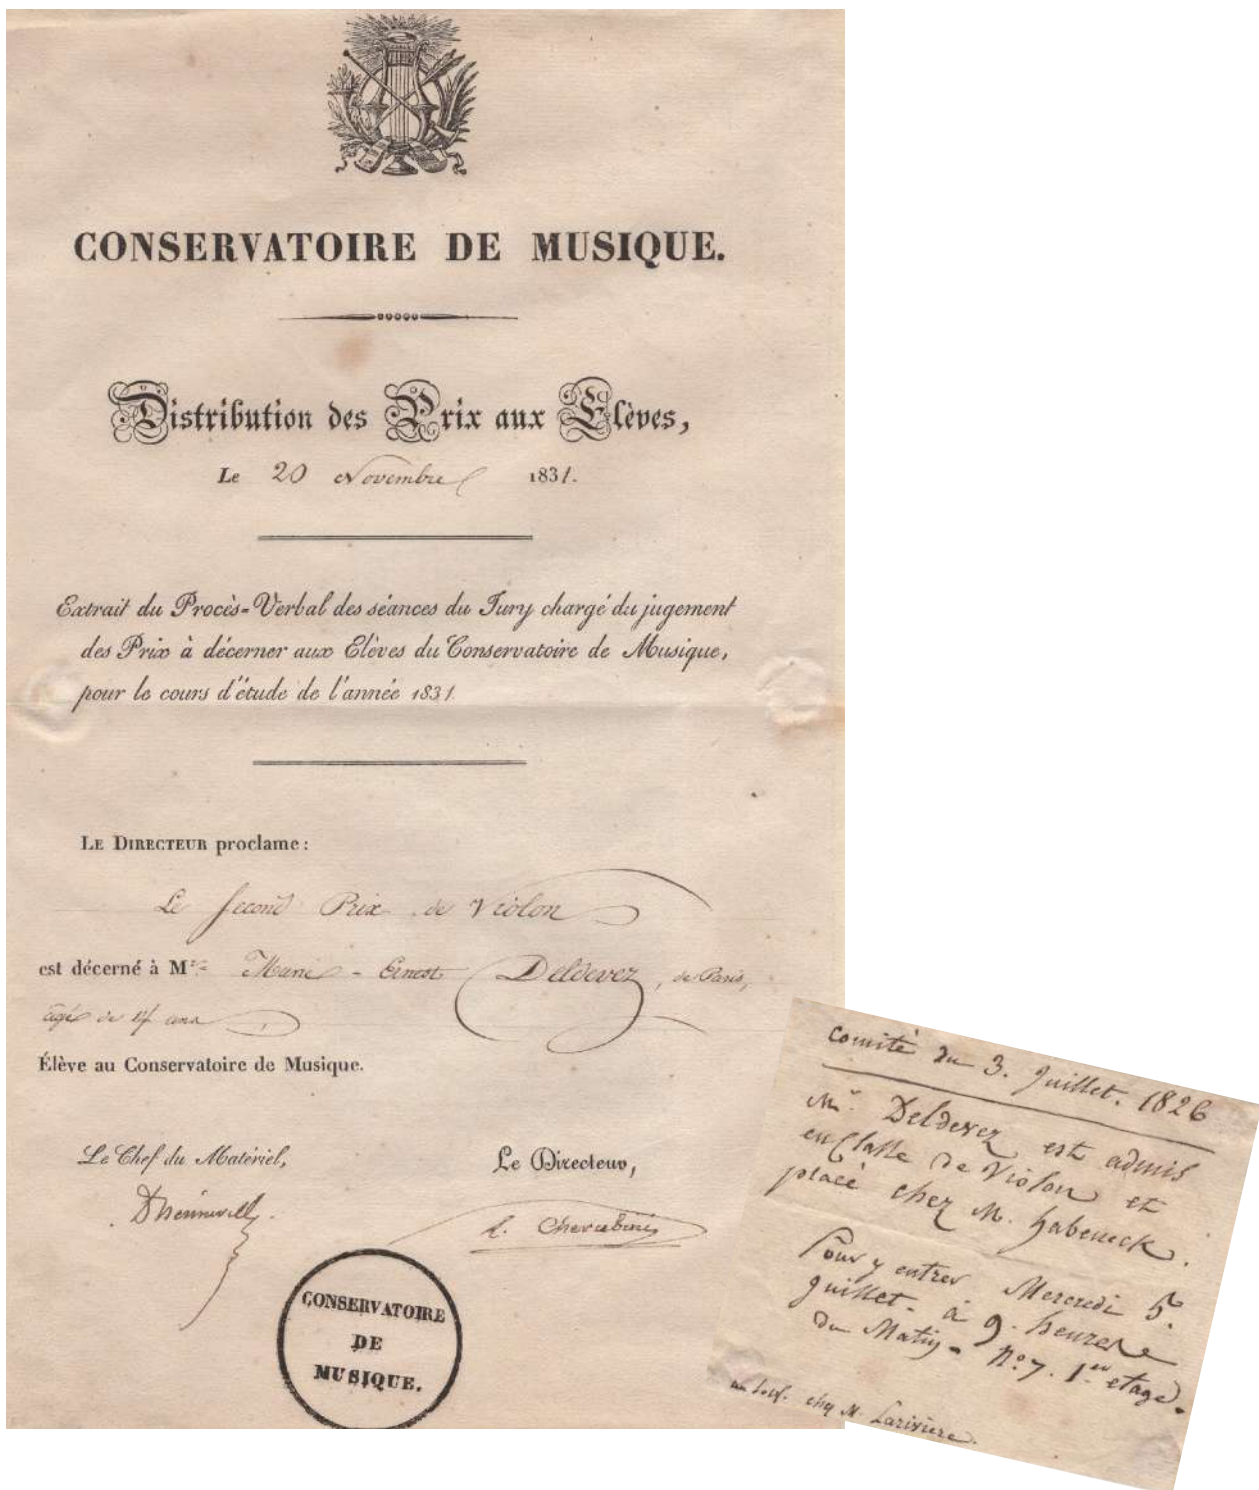 CONSERVATOIRE DE MUSIQUE.
Distribution des Prix aux Elèves,
Le 20 Novembre 1831.
Extrait du Procès-Verbal des séances du Jury chargé du jugement
des Prix à décerner aux Elèves du Conservatoire de Musique,
pour le cours d'étude de l'année 1831
LE DIRECTEUR proclame :
Le second Prix de Violon
est décerné à Mr Marie - Ernest Deldevez, de Paris,
âgé de 14 ans
Élève au Conservatoire de Musique.
Le Chef du Matériel,
Le Directeur,
L. Cherubini
CONSERVATOIRE
DE
MUSIQUE.
Comité du 3. Juillet. 1826
Mr. Deldevez est admis
en Classe de Violon et
placé chez M. habeneck.
Pour y entrer Mercredi 5.
Juillet. à 9. heures
du Matin. No. 7. 1er etage.
chez M. Larivière.